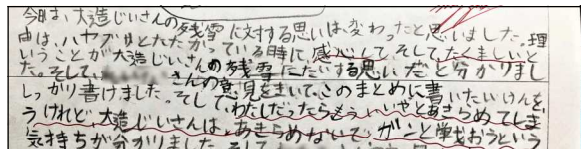 今日は、大造じいさんの残雪に対する思いは、変わったと思いました。理
由は、ハヤブサとたたかっている時に、感心して、そして、たくましいと
いうことが大造じいさんの残雪にたいする思いだと分かりまし
た。そして、さんの意見をきいて、このまとめに書いたいけんを、
しっかり書けました。そして、わたしだったらもういいやとあきらめてしま
うけれど、大造じいさんは、あきらめないで、ガンと戦おうという
気持ちが分かりました。そして